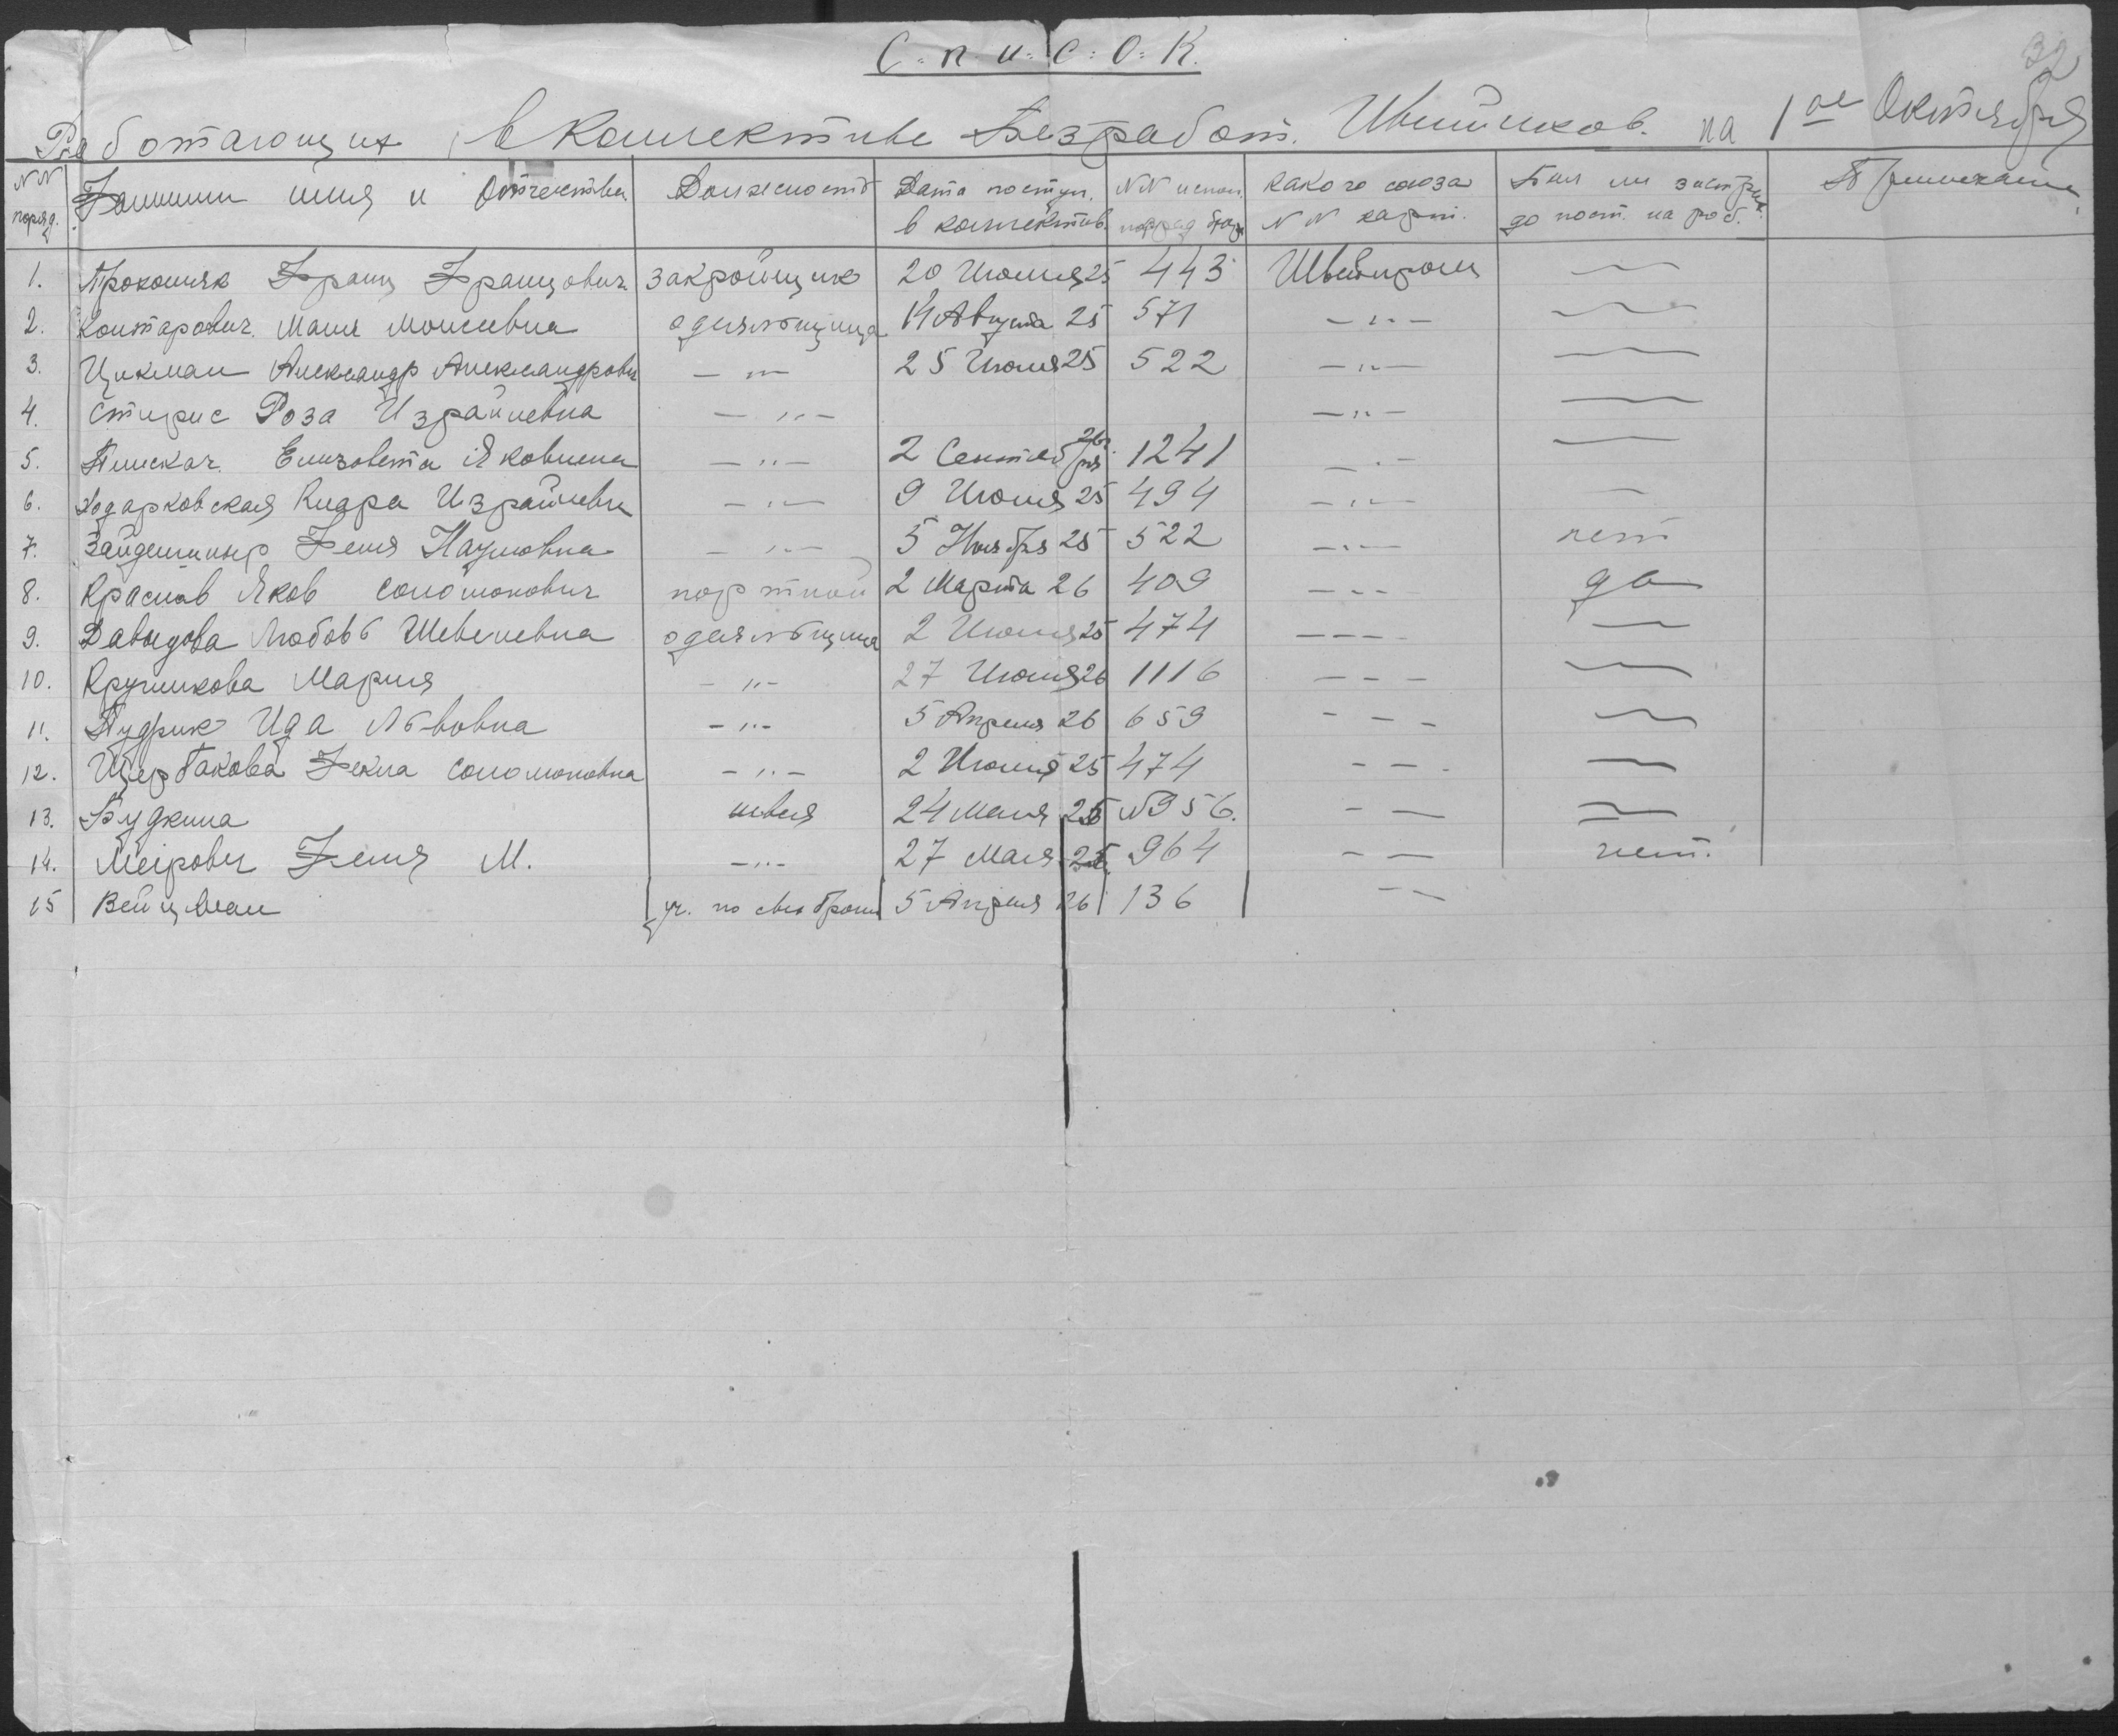 32
С:п:и:с:О:К.
Работающих в Коллективе Безработ. Швейников. на 1ое Октября
NN поряд. Фамилия имя и Отчества Должность Дата поступ. в коллектив. NN Какого союза NN карт. Был ли застрах. до пост. на раб. Примечание
1. Прокопяк Франц Францович закройщик 20 Июля 25 443 Швейпром —
2. Контарович Маня Моисеевна одеяльщица 14 Августа 25 571 — „ — —
3. Цикман Александр Александрович — „ — 25 Июля 25 522 — „ — —
4. Стирис Роза Израйлевна — „ — — „ — —
5. Пискач. Елизовета Яковлена — „ — 2 Сентября 26г 1241 — „ — —
6. Ходарковская Клара Израйлевн — „ — 9 Июля 25 494 — „ — —
7. Феня Наумовна — „ — 5 Ноября 25 522 — „ — нет
8. Краснов Яков Соломонович портной 2 Марта 26 409 — - - да
9. Давыдова Любовь Шевелевна одеяльщица 2 Июля 25 474 — — — - —
10. Кручикова Мария — „ — 27 Июля 26 1116 — — — —
11. Пудрик Ида Львовна — „ — 5 Апреля 26 659 - — — —
12. Щербакова Фекла Соломоновна — „ — 2 Июля 25 474 - — - —
13. Будкина швея 24 Мая 26 N956. - — —
14. Меерович Феня М. — „ — 27 Мая 26 964 - — нет.
15 Вейцман уч. по брони 5 Апреля 26 136 - —